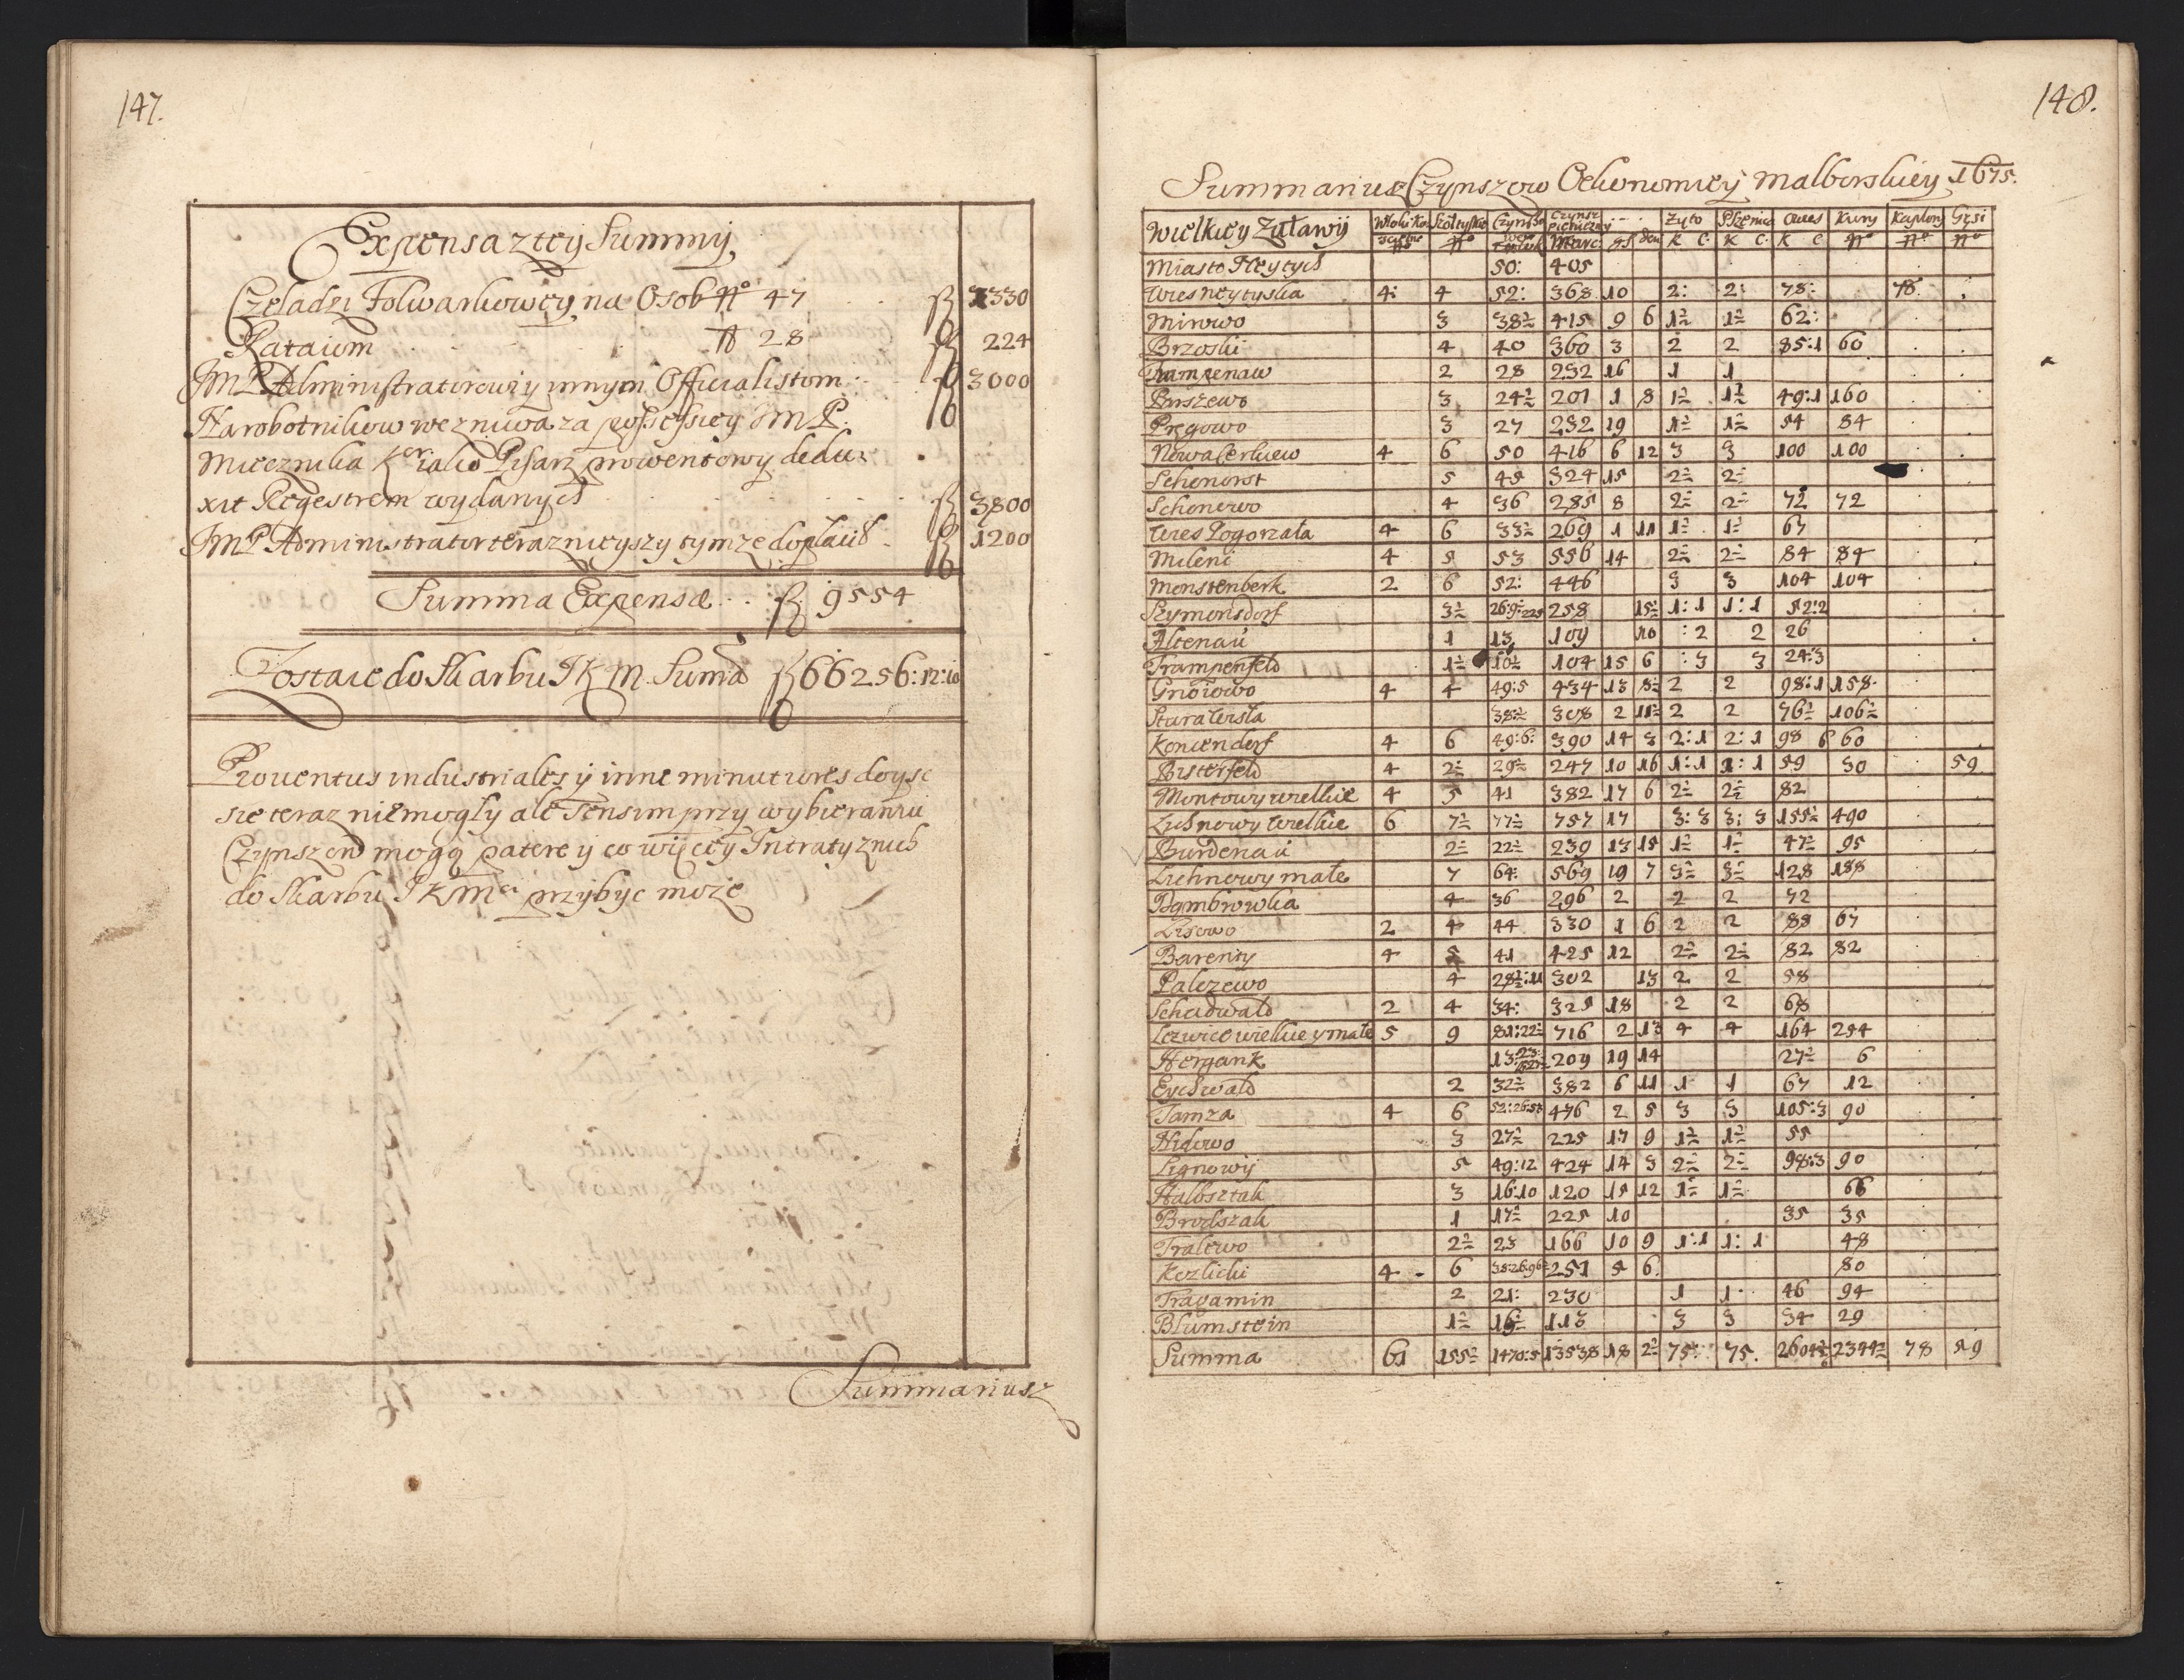 147.
Expensa z tey Summy
Czeladzi Folwarkowey na Osob No 47 fl 1330
Rataiom N 28 fl 224
JMP Administratorowi y innym Officialistom fl 3000
Na robotnikow we zniwa za possessiey JMP.
Miecznika Kor Pisarz prowentowy dedu=
xit Regestrem wydanych fl 3800
JMP Administrator teraznieyszy tymze doplacił fl 1200
Summa Expensæ fl 9554
Zostaie do Skarbu JKM Suma fl 66256:12:
Prouentus industriales ÿ inne minutiores doyść
się teraz niemogły ale sensim przy wybieraniu
Czynszow mogą patere ÿ co więcey Intraty znich
do Skarbu JKMci przybyc moze
Summariusz
148.
Summariusz Czynszow Oekonomiey Malborskiey 1675.
Wielkiey Zuławÿ Czynsz Zyto Pszenica Owies Kury Kapłony Gęsi
Marc gs den K C K C K C No No No
Miasto Neytych 50: 405
Wies neytyska 4: 4 52: 368 10 2: 2: 78: 78
Mirowo 3 38½ 415 9 6 1½ 1½ 62:
Brzoski 4 40 360 3 2 2 85:1 60
Trampenau 2 28 232 16 1 1
Parszewo 3 24½ 201 1 8 1½ 1½ 49:1 160
Pręgowo 3 27 232 19 1½ 1½ 54 84
Nowa Cerkiew 4 6 50 416 6 12 3 3 100 100
Schonorst 5 45 324 15 2½ 2½
Schonewo 4 36 285 8 2½ 2½ 72 72
Wies Pogorzała 4 6 33½ 269 1 11 1½ 1½ 67
Mileni 4 5 53 556 14 2½ 2½ 84 84
Monstenberk 2 6 52: 446 3 3 104 104
Szymonsdorf 3½ 258 15½ 1:1 1:1 52:2
Altenau 1 13 109 10 :2 2 26
Trampenfeld 1½ 10½ 104 15 6 :3 3 24:3
Gnoiowo 4 4 49:5 434 13 8½ 2 2 98:1 158
Stara 38½ 308 2 11½ 2 2 76½ 106½
Koniendorf 4 6 49:6: 390 14 3 2:1 2:1 98 6 60
Bisterfeld 4 2½ 29½ 247 10 16 1:1 1:1 59 30 59
Montowy wielkie 4 5 41 382 17 6 2½ 2½ 82
Lichnowy Wielkie 6 7½ 77½ 757 17 3:3 3:3 155½ 490
Burdenau 2½ 22½ 239 13 15 1½ 1½ 47½ 95
Lichnowy małe 7 64: 569 19 7 3½ 3½ 128 188
Dąmbrowka 4 36 296 2 2 2 72
Lisewo 2 4 44 330 1 6 2 2 88 67
Bareniy 4 5 41 425 12 2½ 2½ 82 82
Palczewo 4 28½:11 302 13 2 2 58
Schadwald 2 4 34: 325 18 2 2 68
Lezwice wielkie y małe 5 9 81:22½ 716 2 13 4 4 164 254
Hergank 209 19 14 27½ 6
Eychwald 2 32½ 382 6 11 1 1 67 12
Tamza 4 6 476 2 5 3 3 105:3 90
Nidowo 3 27½ 225 17 9 1½ 1½ 55
Lignowÿ 5 49:12 424 14 3 2½ 2½ 98:3 90
Halbsztak 3 16:10 120 15 12 1½ 1½ 66
Brodszak 1 17½ 225 10 35 35
Tralewo 2½ 23 166 10 9 1:1 1:1 48
Kozliki 4 6 251 5 6 80
Tragamin 2 21: 230 1 1 46 94
Blumstein 1½ 16½ 113 3 3 34 29
Summa 61 155½ 1470:5 13538 18 2½ 75: 75. 2604½ 2344½ 78 59